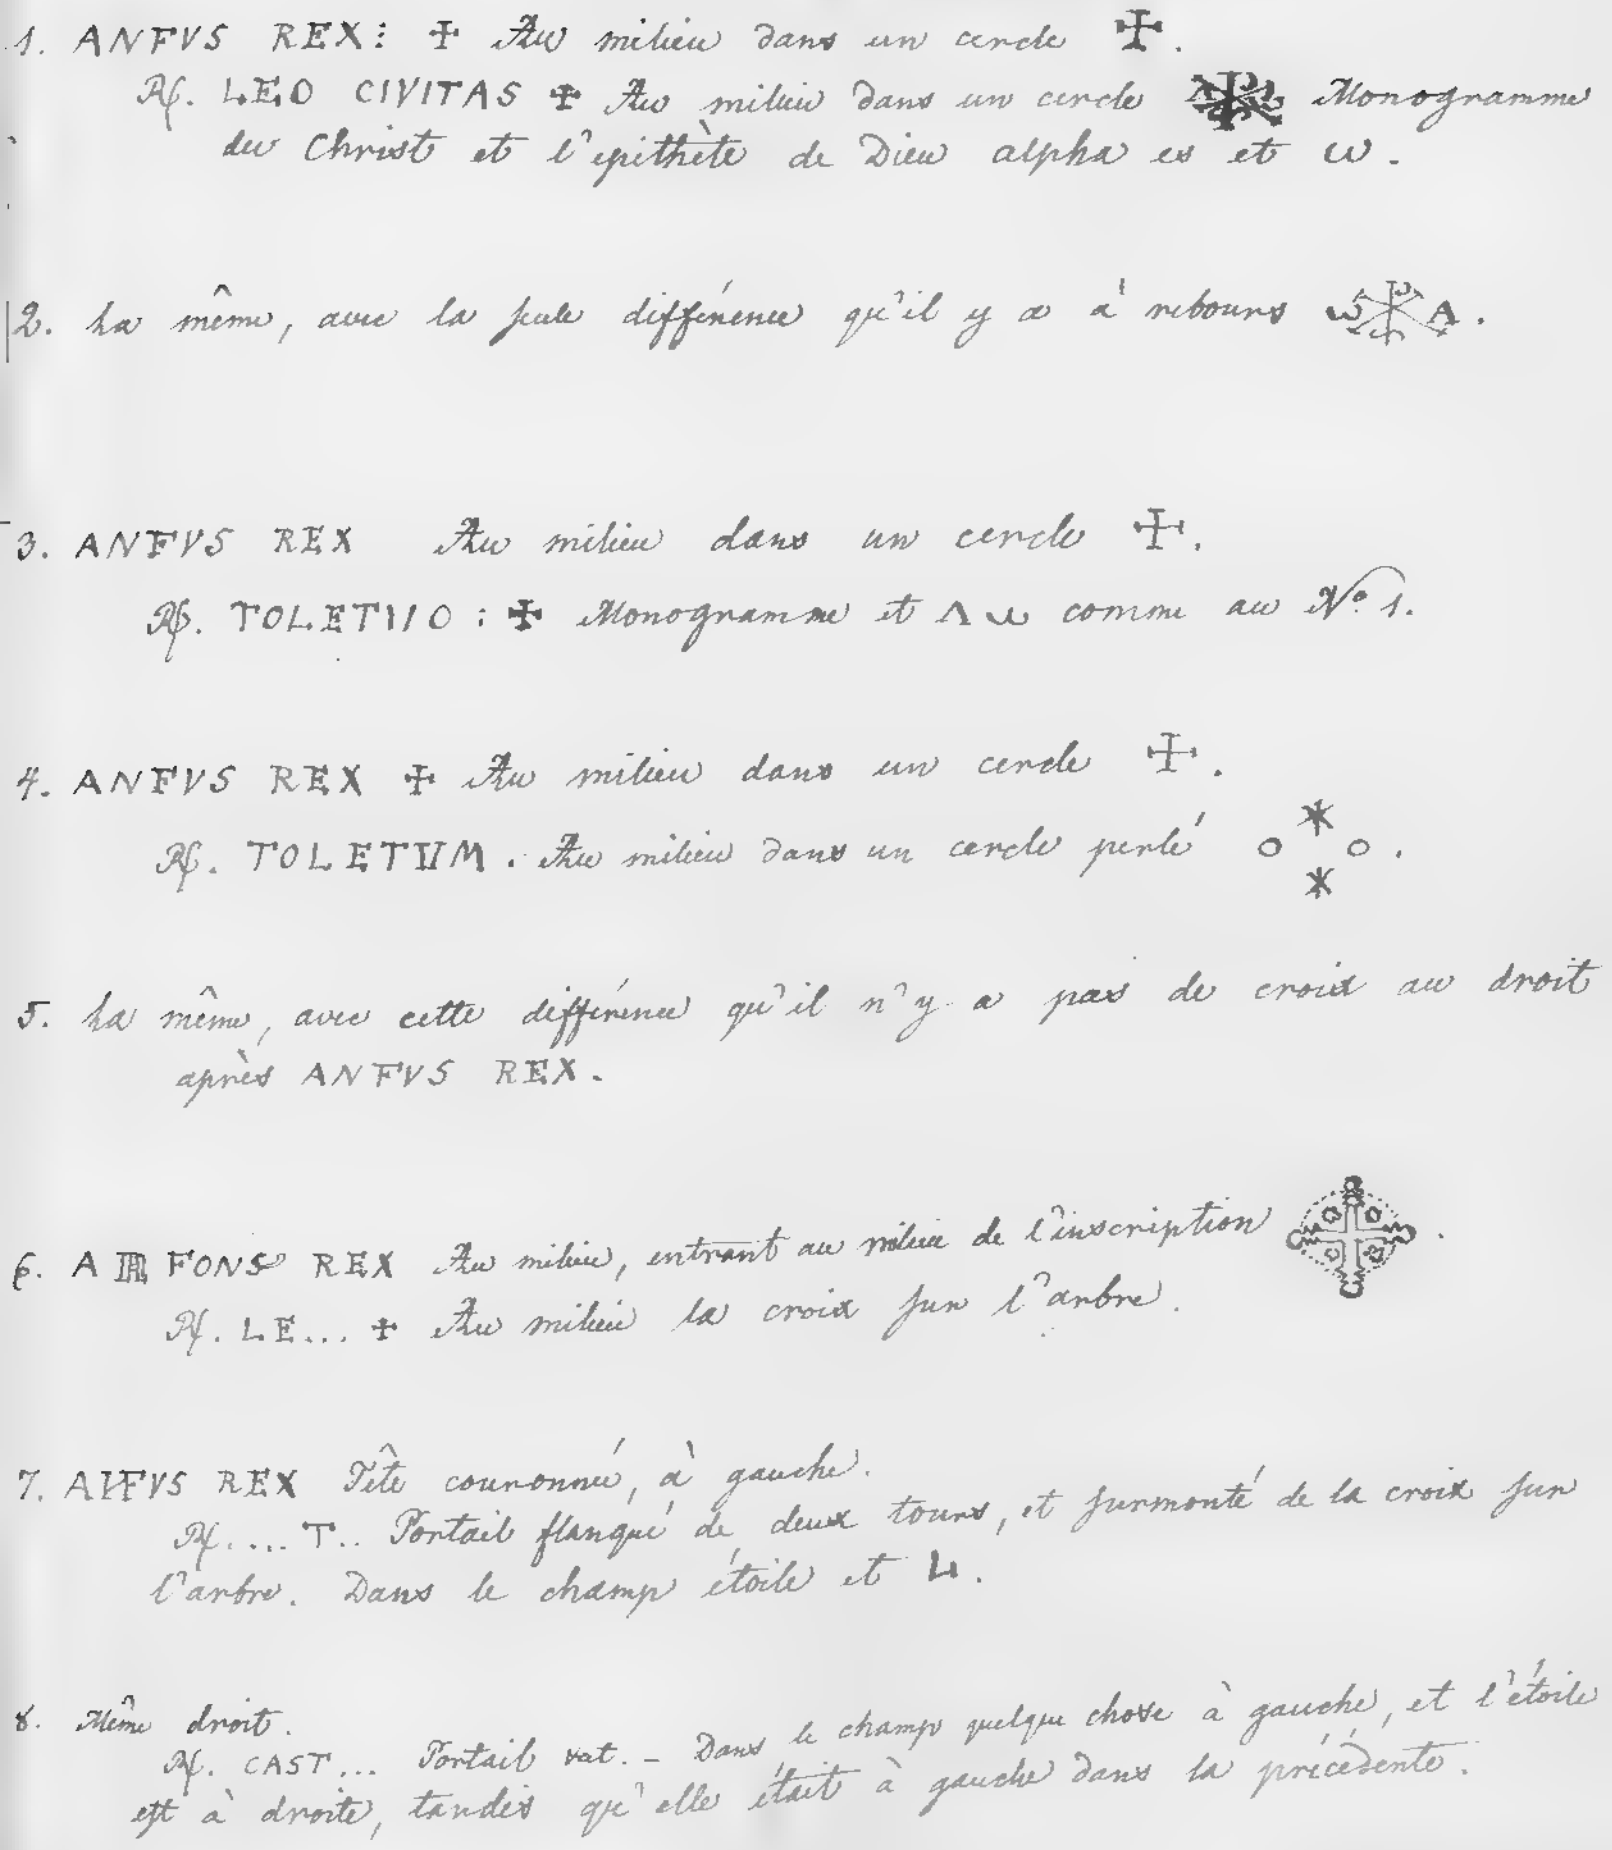 1. ANFVS REX ⁝ ✠ Au milieu dans un cercle ✠.
℟. LEO CIVITAS ✠ Au milieu dans un cercle Monogramme
du Christ et l'epithète de Dieu alpha es et ω.
2. La même, avec la seule différence qu'il y a à rebours ω ☧ A.
3. ANFVS REX Au milieu dans un cercle ✠.
℟. TOLETIIO : ✠ Monogramme et Λ ω comme au N.º 1.
4. ANFVS REX ✠ Au milieu dans un cercle ✠.
℟. TOLETIIM. Au milieu dans un cercle perlé * o o * .
5. La même, avec cette différence qu'il n'y a pas de croix au droit
après ANFVS REX.
6. A FONS REX Au milieu, entrant au milieu de l'inscription .
℟. LE... ✠ Au milieu la croix sur l'arbre.
7. AIFVS REX Tête couronné, à gauche.
℟. ... T.. Portail flanqué de deux tours, et surmonté de la croix sur
l'arbre. Dans le champ étoile et L.
8. Même droit.
℟. CAST... Portail - Dans le champ quelque chose à gauche, et l'étoile
est à droite, tandis qu'elle était à gauche dans la précédente.